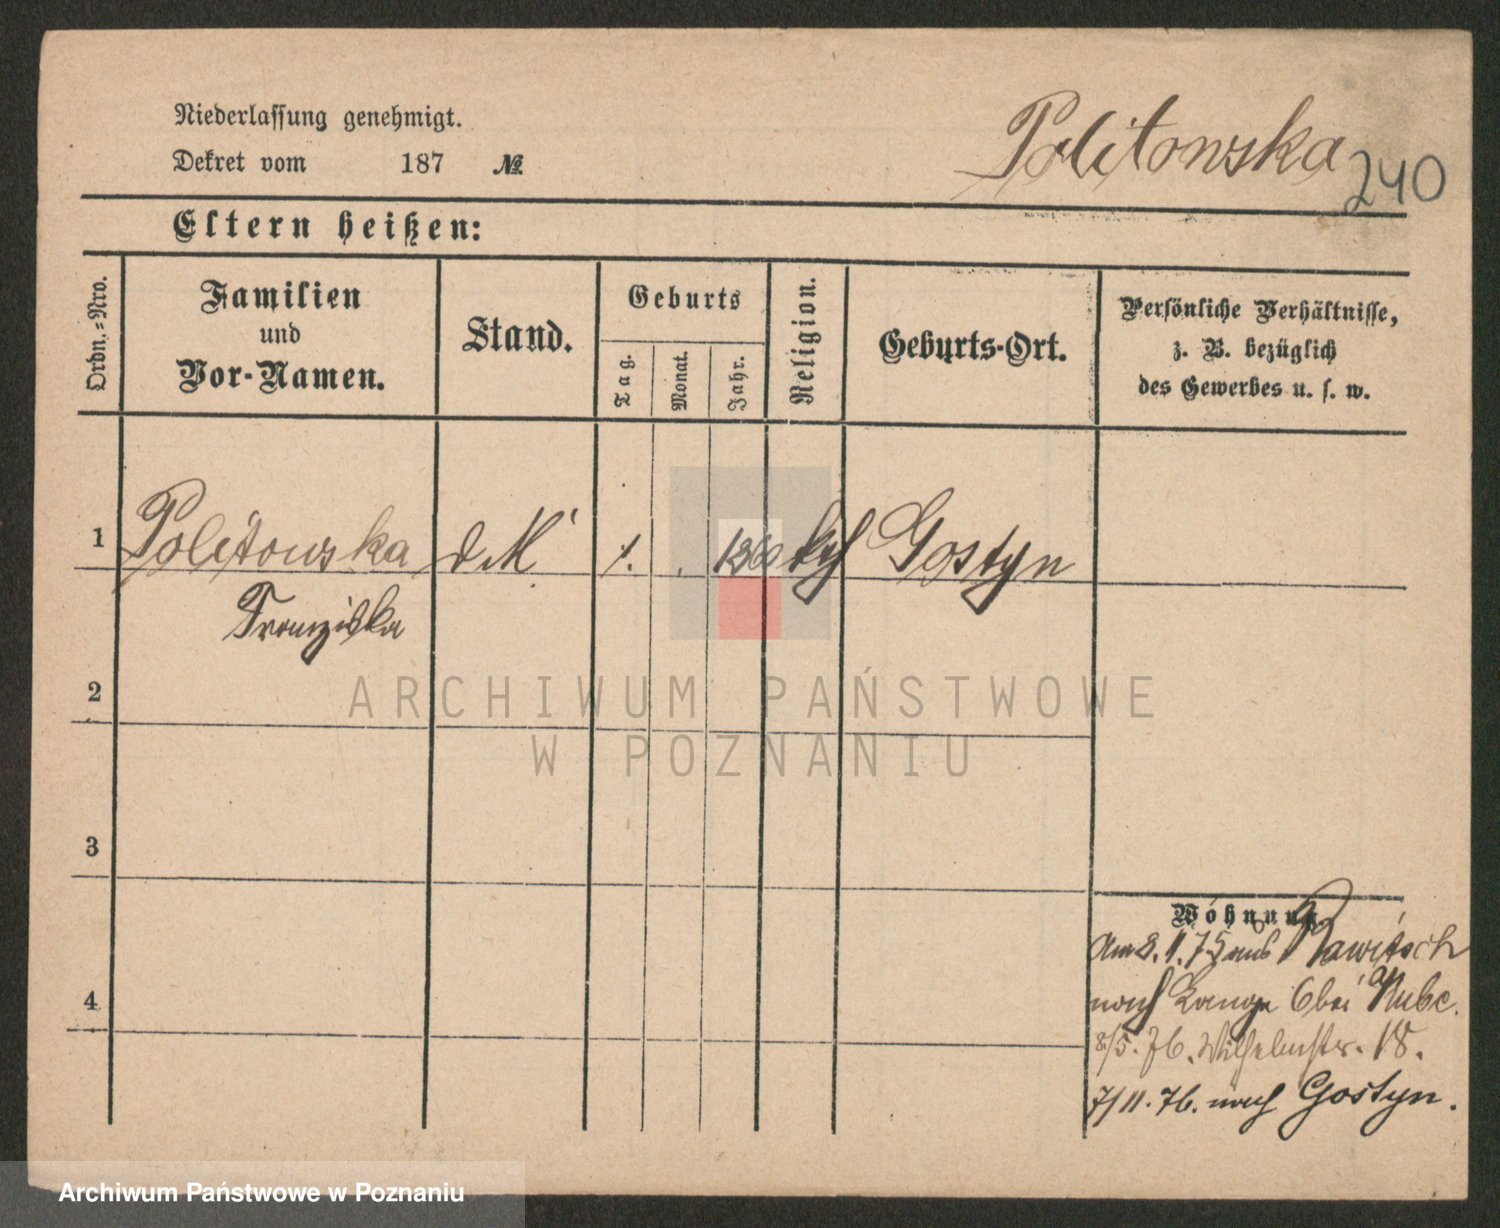 Niederlassung genehmigt.
Dekret vom 187 №
Politowska
240
Eltern heißen:
Ordn.=Nro.
Familien
und
Vor-Namen.
Stand.
Geburts
Tag.
Monat.
Jahr.
Religion.
Geburts-Ort.
Persönliche Verhältnisse,
z. B. bezüglich
des Gewerbes u. s. w.
1 Politowska d M 1. 1860 kth Gostyn
Franziska
2
3
4
Wohnung
Am 8. 1. 75 aus Rawitsch
nach Lange 6 bei
8/5. 76. Wilhelmstr. 18.
7/11. 76. nach Gostyn.
ARCHIWUM PAŃSTWOWE
W POZNANIU
Archiwum Państwowe w Poznaniu